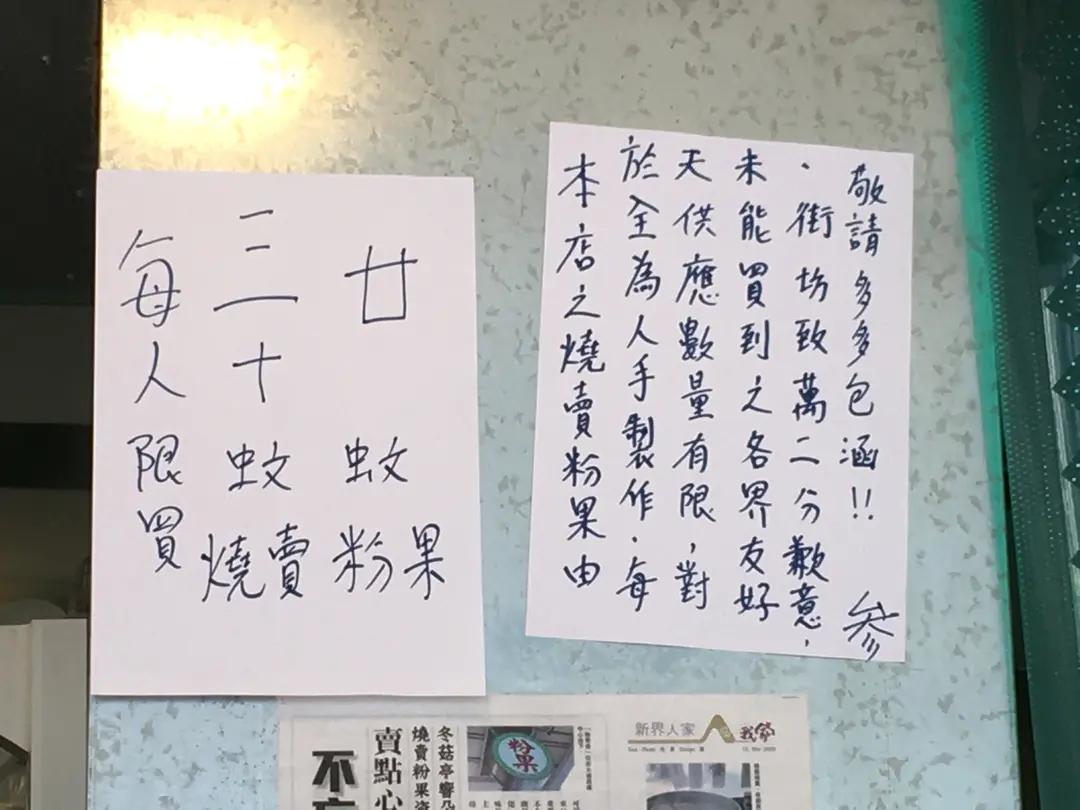 每人限買
三十蚊燒賣
廿蚊粉果
本店之燒賣粉果由
於全為人手製作．每
天供應數量有限，對
未能買到之各界友好
、街坊致萬二分歉意，
敬請多多包涵!! 參
冬菇亭響朵
燒賣粉果資
賣點心
不
粉果
新界人家